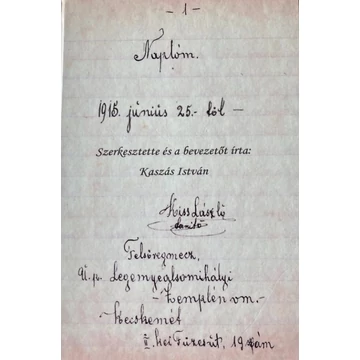 - 1 -
Naplóm.
1915. június 25.-től -
Szerkesztette és a bevezetőt írta:
Kaszás István
Kiss László
tanító
Felsőregmecz,
U.p. Legenyealsómihályi
Zemplén vm.-
Kecskemét
II. ker. Füzesút, 19 szám